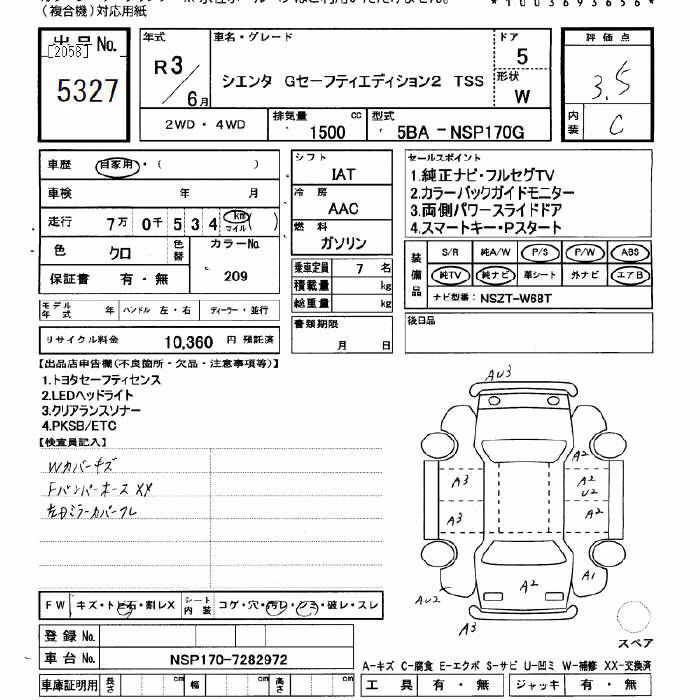 (複合機)対応用紙
*1003693656*
出品No.
[2058]
5327
年式
R3/6月
車名・グレード
シエンタ Gセーフティエディション2 TSS
ドア
5
形状
W
評価点
3.5
内装
C
2WD・4WD
排気量
1500
cc
型式
5BA-NSP170G
車歴
自家用・( )
車検
年 月
走行
7万 0千 5 3 4
km
マイル
( )
色
クロ
色替
カラーNo.
209
保証書
有・無
シフト
IAT
冷房
AAC
燃料
ガソリン
乗車定員
7 名
積載量
kg
総重量
kg
セールスポイント
1.純正ナビ・フルセグTV
2.カラーバックガイドモニター
3.両側パワースライドドア
4.スマートキー・Pスタート
装備品
S/R
純A/W
P/S
P/W
ABS
純TV
純ナビ
革シート
外ナビ
エアB
ナビ型番:
NSZT-W68T
モデル年式
年
ハンドル 左・右
ディーラー・並行
書類期限
月 日
後日品
リサイクル料金
10,360 円 預託済
【出品店申告欄(不良箇所・欠品・注意事項等)】
1.トヨタセーフティセンス
2.LEDヘッドライト
3.クリアランスソナー
4.PKSB/ETC
【検査員記入】
Wカバーキズ
Fバンパーホース XX
左Dミラーカバーズレ
AU3
A2
A3
A2
U2
A3
A2
A2
A1
AU2
A3
スペア
FW
キズ・トビ石・割レX
シート内装
コゲ・穴・汚レ・シミ・破レ・スレ
登録No.
車台No.
NSP170-7282972
A-キズ C-腐食 E-エクボ S-サビ U-凹ミ W-補修 XX-交換済
車庫証明用
長さ
cm
幅
cm
高さ
cm
工具
有・無
ジャッキ
有・無